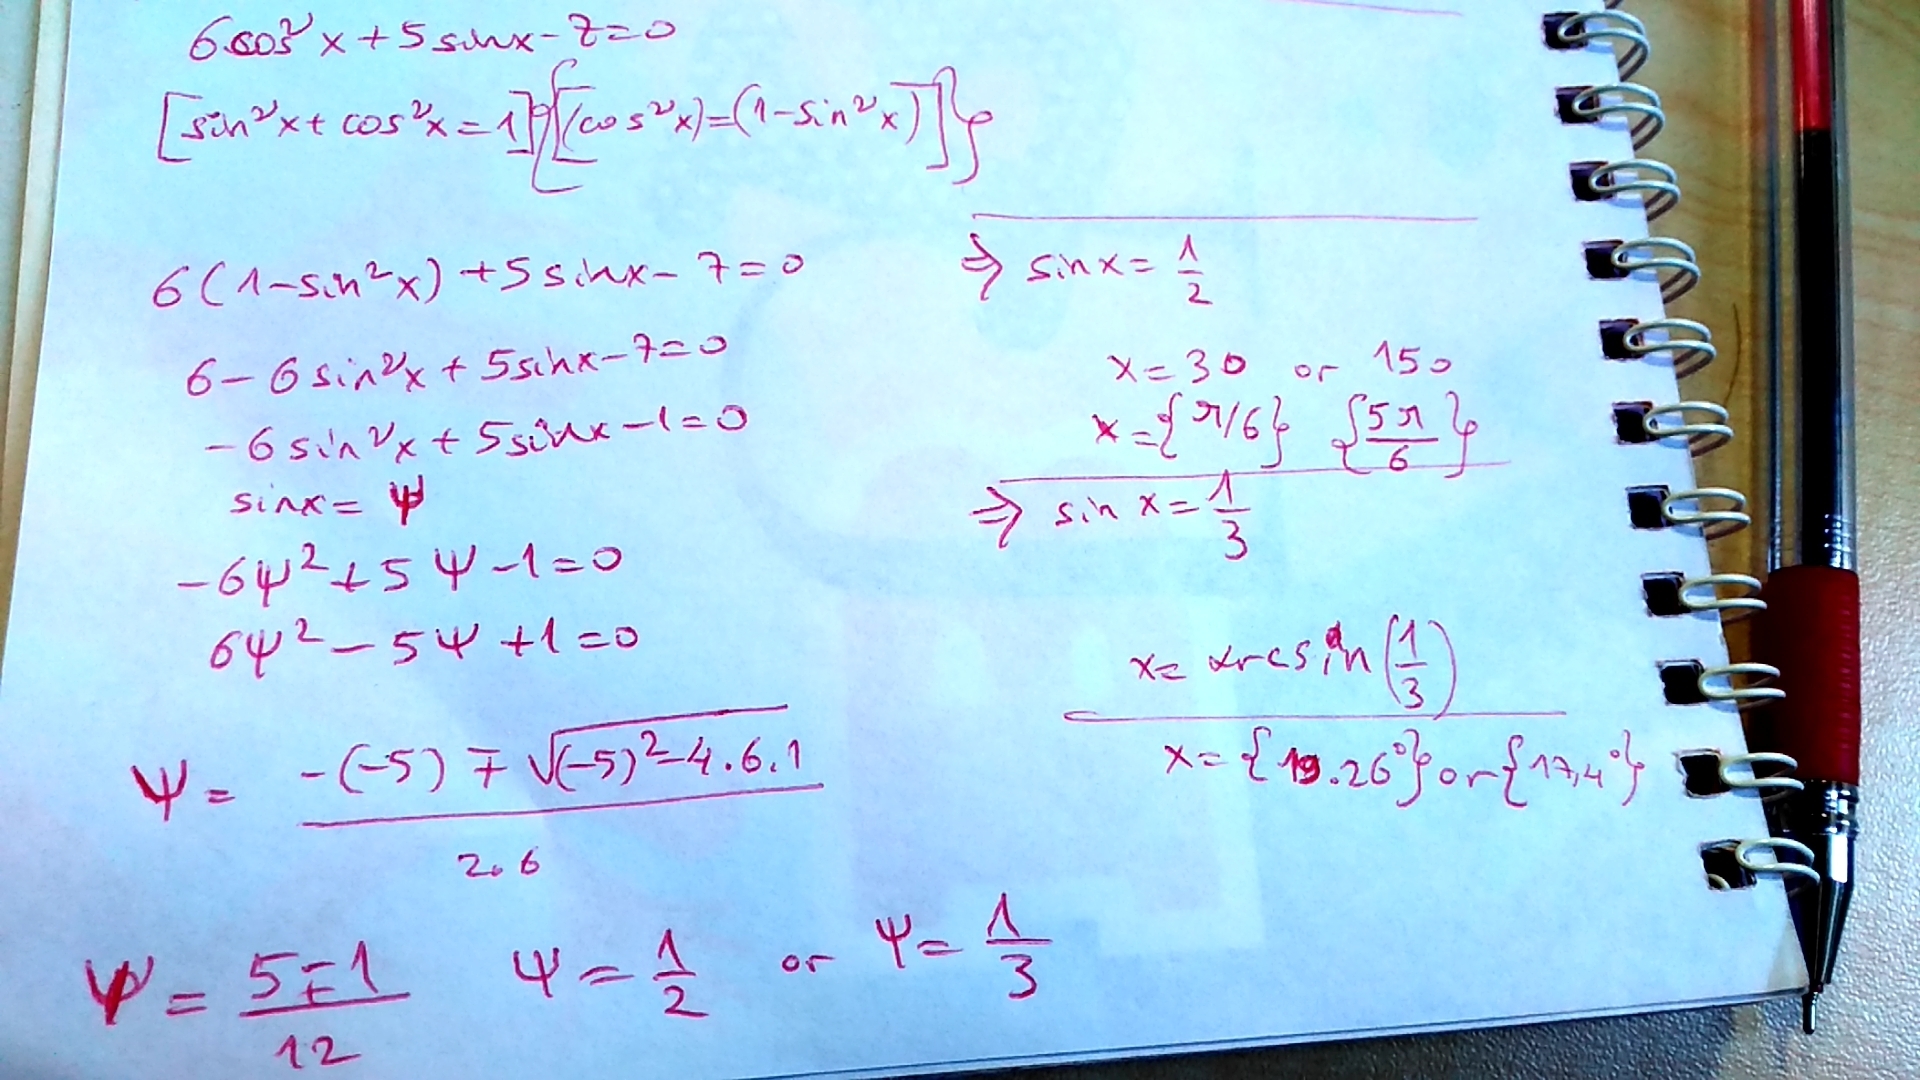 6cos²x+5sinx-7=0
[sin²x+cos²x=1]{[(cos²x)=(1-sin²x)]}
6(1-sin²x)+5sinx-7=0
6-6sin²x+5sinx-7=0
-6sin²x+5sinx-1=0
sinx=ψ
-6ψ²+5ψ-1=0
6ψ²-5ψ+1=0
ψ= (-(-5)∓√((-5)²-4.6.1))/(2.6)
ψ= (5∓1)/12 ψ=1/2 or ψ=1/3
⇒ sinx=1/2
x=30 or 150
x={π/6} {5π/6}
⇒ sin x=1/3
x=arcsin(1/3)
x={19.26°} or {17,4°}